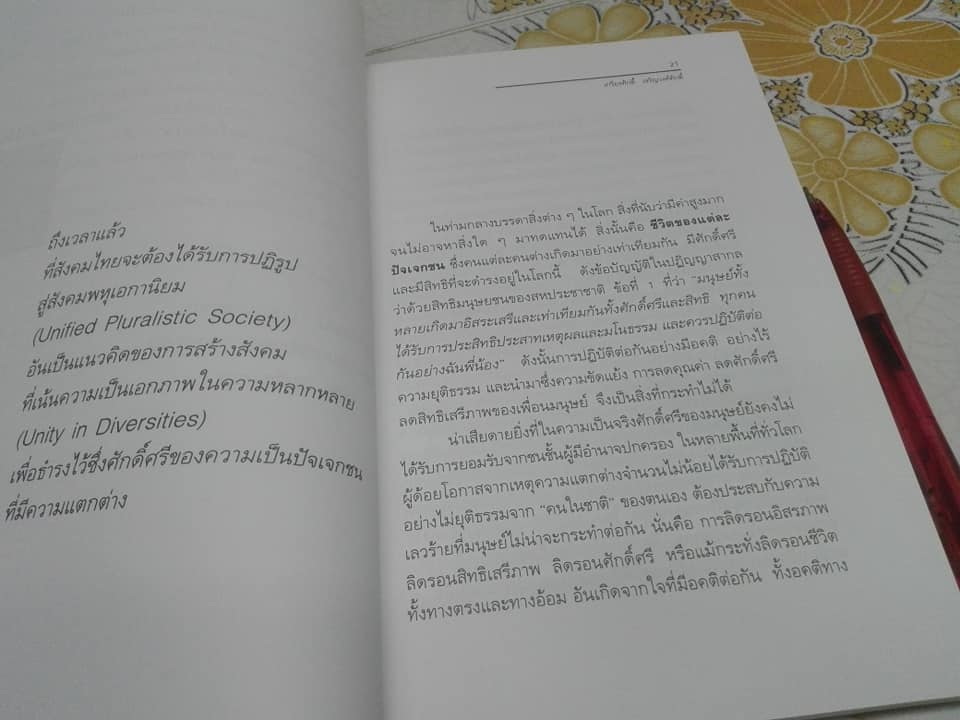 ถึงเวลาแล้ว
ที่สังคมไทยจะต้องได้รับการปฏิรูป
สู่สังคมพหุเอกานิยม
(Unified Pluralistic Society)
อันเป็นแนวคิดของการสร้างสังคม
ที่เน้นความเป็นเอกภาพในความหลากหลาย
(Unity in Diversities)
เพื่อธำรงไว้ซึ่งศักดิ์ศรีของความเป็นปัจเจกชน
ที่มีความแตกต่าง
21
เกรียงศักดิ์ เจริญวงศ์ศักดิ์
ในท่ามกลางบรรดาสิ่งต่าง ๆ ในโลก สิ่งที่นับว่ามีค่าสูงมาก
จนไม่อาจหาสิ่งใด ๆ มาทดแทนได้ สิ่งนั้นคือ ชีวิตของแต่ละ
ปัจเจกชน ซึ่งคนแต่ละคนต่างเกิดมาอย่างเท่าเทียมกัน มีศักดิ์ศรี
และมีสิทธิที่จะดำรงอยู่ในโลกนี้ ดังข้อบัญญัติในปฏิญญาสากล
ว่าด้วยสิทธิมนุษยชนของสหประชาชาติ ข้อที่ 1 ที่ว่า "มนุษย์ทั้ง
หลายเกิดมาอิสระเสรีและเท่าเทียมกันทั้งศักดิ์ศรีและสิทธิ ทุกคน
ได้รับการประสิทธิประสาทเหตุผลและมโนธรรม และควรปฏิบัติต่อ
กันอย่างฉันพี่น้อง" ดังนั้นการปฏิบัติต่อกันอย่างมีอคติ อย่างไร้
ความยุติธรรม และนำมาซึ่งความขัดแย้ง การลดคุณค่า ลดศักดิ์ศรี
ลดสิทธิเสรีภาพของเพื่อนมนุษย์ จึงเป็นสิ่งที่กระทำไม่ได้
น่าเสียดายยิ่งที่ในความเป็นจริงศักดิ์ศรีของมนุษย์ยังคงไม่
ได้รับการยอมรับจากชนชั้นผู้มีอำนาจปกครอง ในหลายพื้นที่ทั่วโลก
ผู้ด้อยโอกาสจากเหตุความแตกต่างจำนวนไม่น้อยได้รับการปฏิบัติ
อย่างไม่ยุติธรรมจาก "คนในชาติ" ของตนเอง ต้องประสบกับความ
เลวร้ายที่มนุษย์ไม่น่าจะกระทำต่อกัน นั่นคือ การลิดรอนอิสรภาพ
ลิดรอนสิทธิเสรีภาพ ลิดรอนศักดิ์ศรี หรือแม้กระทั่งลิดรอนชีวิต
ทั้งทางตรงและทางอ้อม อันเกิดจากใจที่มีอคติต่อกัน ทั้งอคติทาง